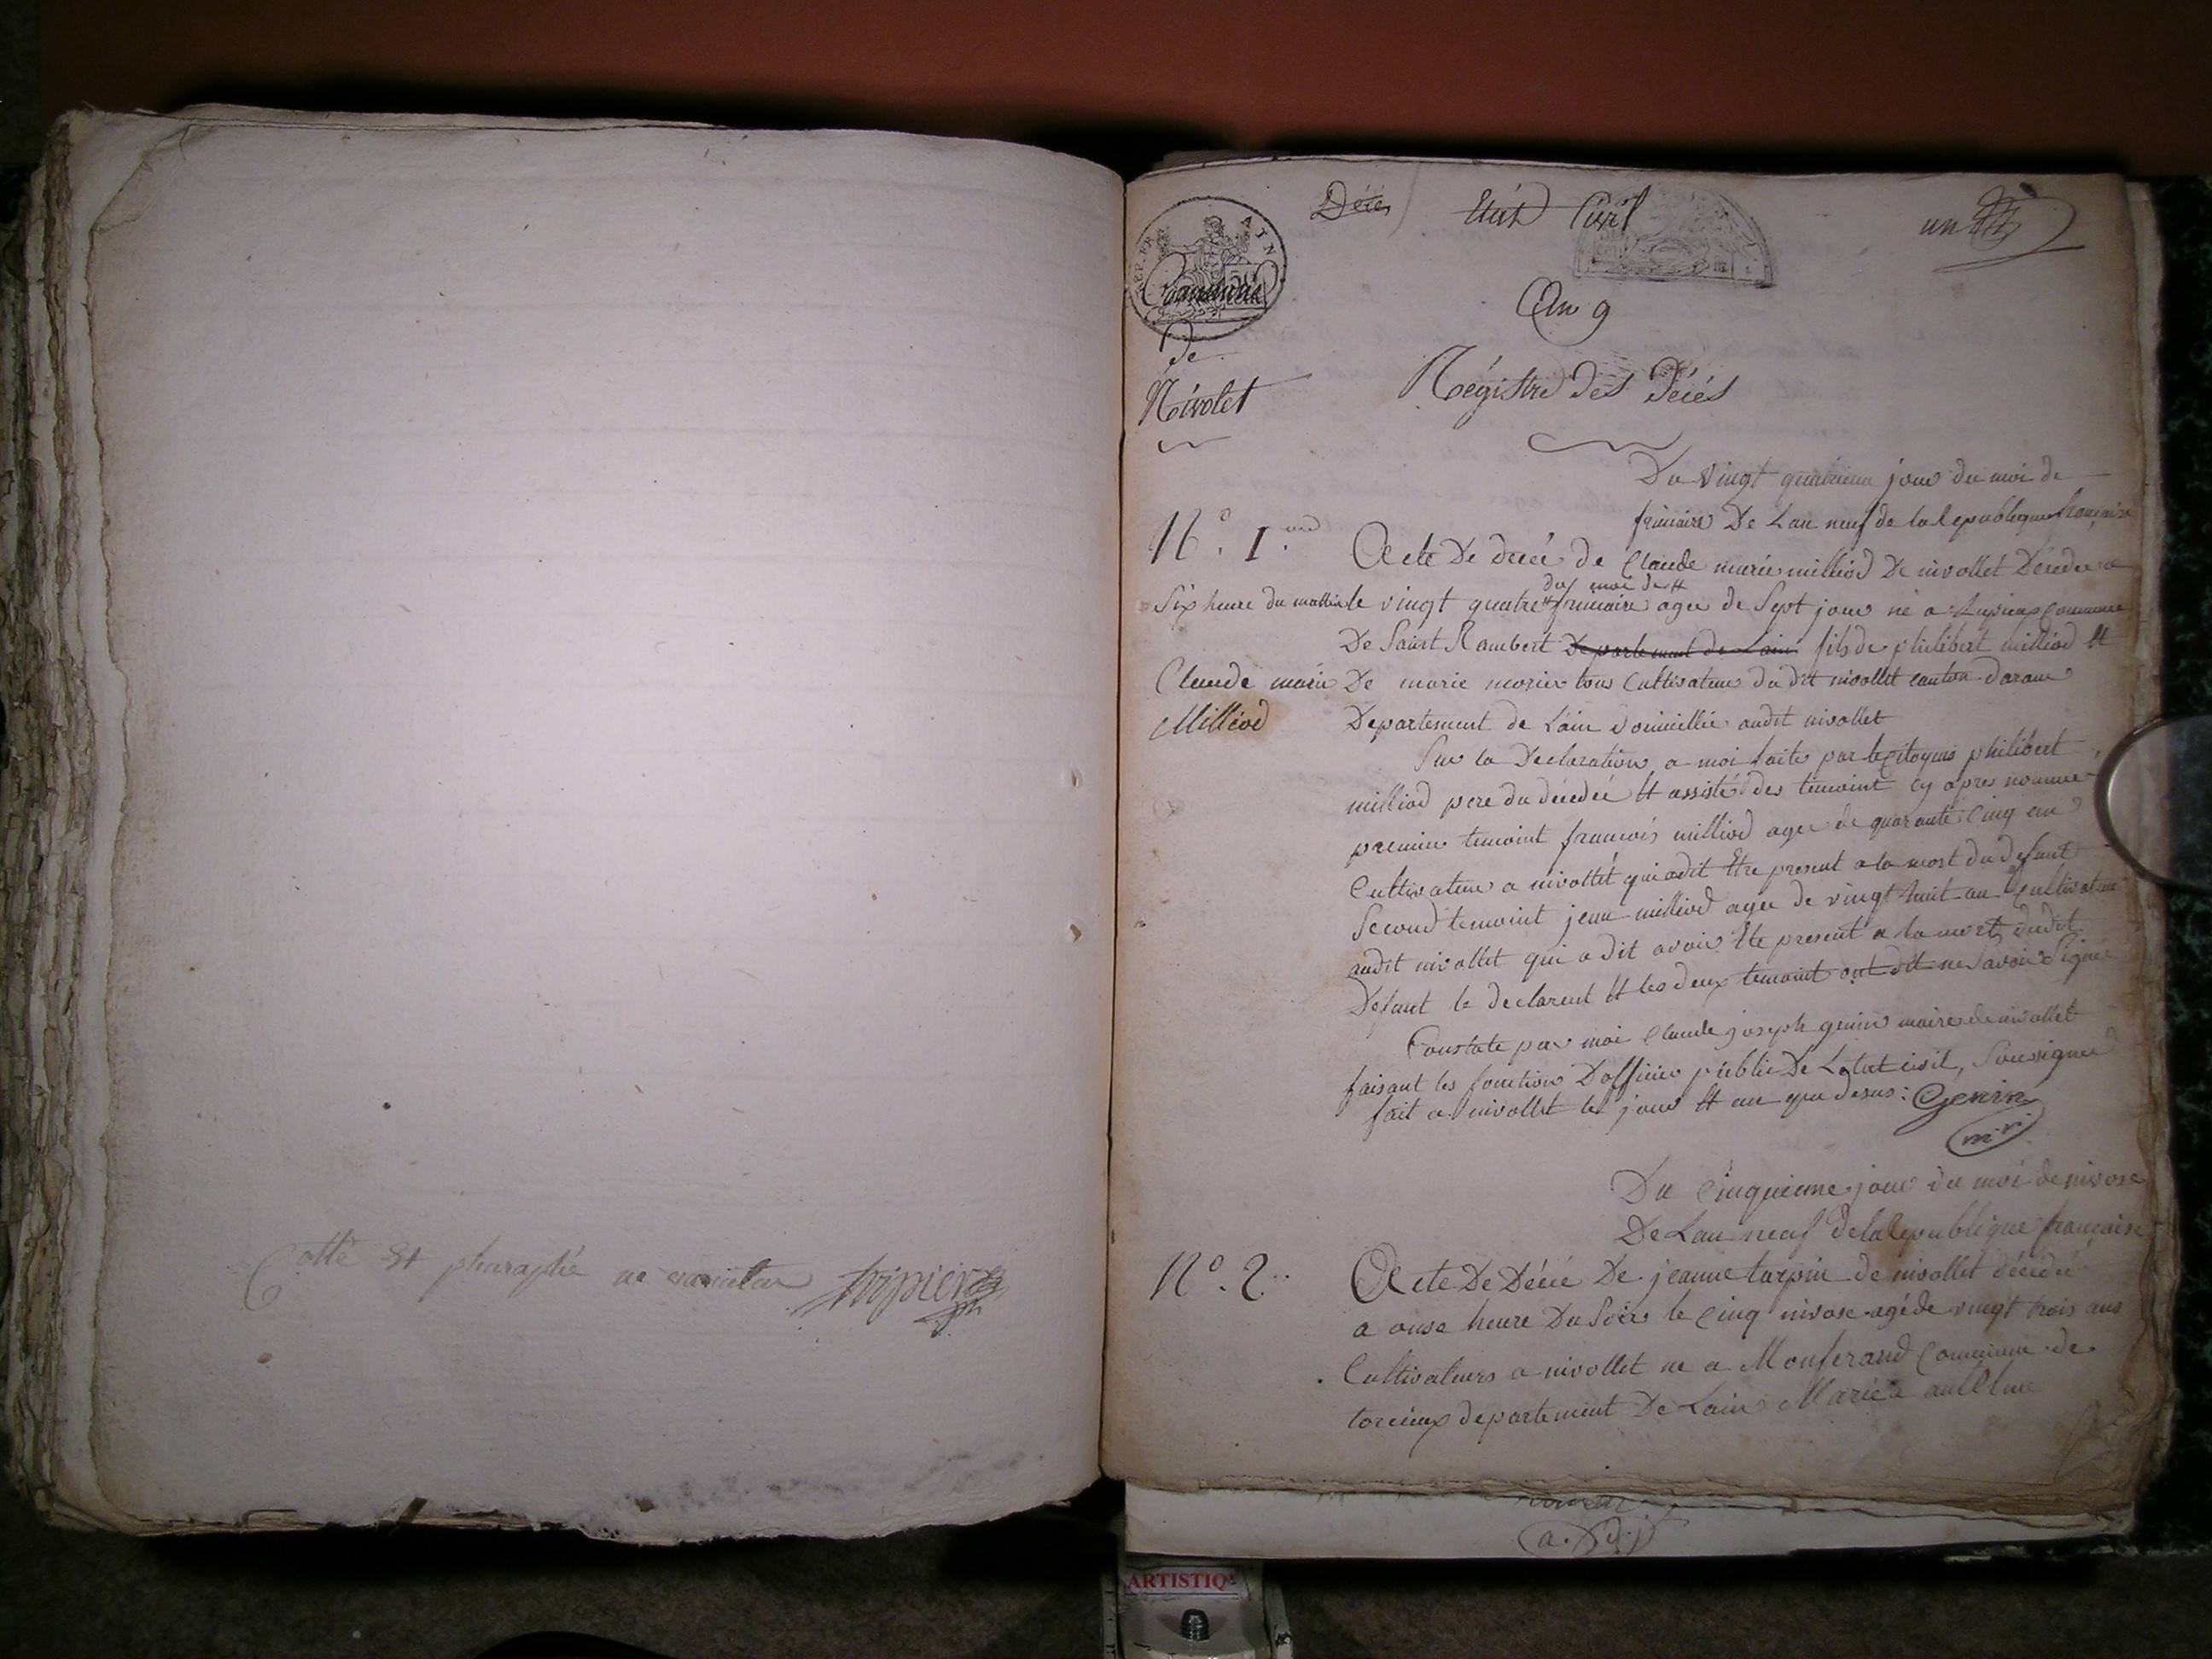 Cotté Et pharaphé ne varietur
Décès
Etat Civil
un
REP. FRA
AIN
Commune
An 9
de
Nivolet
Régistre des Décés
Du vingt quatrieme jour du moi de
frimaire De Lan neuf de la Republique francaise
N° 1er
Acte De decé de Claude marie milliod De nivollet Décédée a
du moi de
Six heure du mattin le vingt quatre frimaire agee de Sept jour né a Commune
De Saint Rambert Departement de Lain fils de philibert milliod Et
Claude marie
De marie morier tous Cultivateur du dit nivollet canton daranc
Milliod
Departement de Lain domicillié audit nivollet
Sur la Declaration a moi faite par le Citoyens philibert
milliod pere du décédée Et assisté des temoint cy apres nommée
premier temoint francois milliod agee de quarante Cinq an
Cultivateur a nivollet qui a dit Etre present a la mort du defunt
Second temoint jean milliod agee de vingt huit an Cultivateur
audit nivollet qui a dit avoir Ete present a la mort dudit
Defunt le declarent Et les deux temoint ont dit ne Savoir Signée
Constate par moi Claude joseph genin maire de nivollet
faisant les fonction Dofficier public De Letat civil, Soussignee
fait a nivollet le jour Et an que desus : Genin
Du Cinquieme jour du moi de nivose
De Lan neuf de la Republique francaise
N° 2
Acte De Décé De jeanne turpin de nivollet décédé
a onse heure Du Soir le Cinq nivose agé de vingt trois ans
Cultivateurs a nivollet né a Monferand Commune de
torcieux departement De Lain Mariée
ARTISTIQ